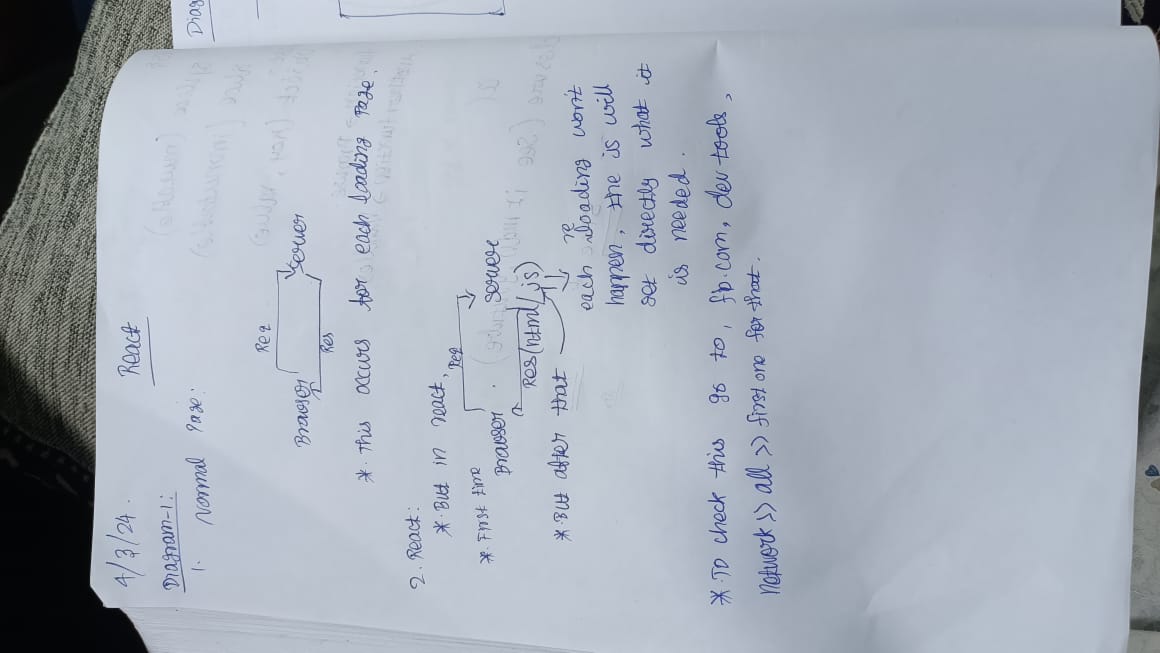 4/3/24.
React
Diagram-1:
1. Normal Page:
Req
Browser
Server
Res
*. This occurs for each loading Page.
2. React:
*. But in react,
* First time
Req
Browser.
Server
Res(html/js)
*. But after that
each reloading won't
happen, the js will
get directly what it
is needed.
*. To check this go to, fb.com, dev tools,
network >> all >> first one for that.
Diag